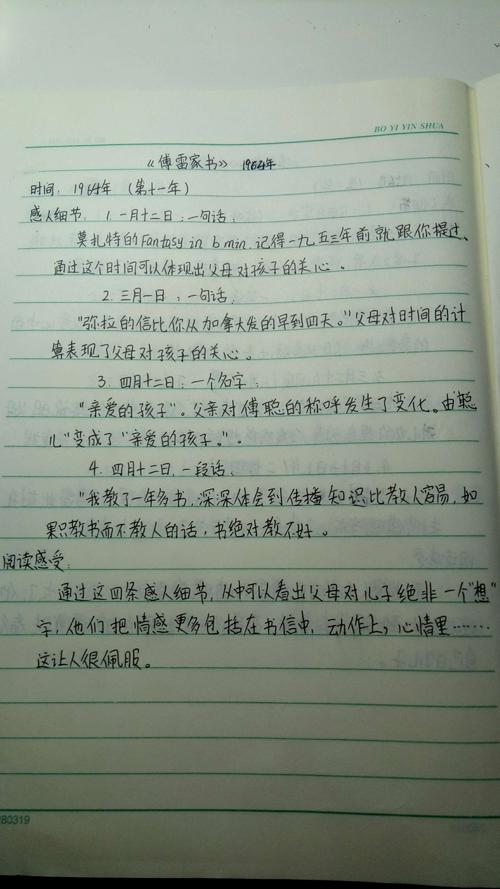 BO YI YIN SHUA
《傅雷家书》 1964年
时间：1964年（第十一年）
感人细节，1.一月十二日：一句话，
莫扎特的Fantasy in b min.记得一九五三年前就跟你提过。
通过这个时间可以体现出父母对孩子的关心。
2.三月一日：一句话，
"弥拉的信比你从加拿大发的早到四天。"父母对时间的计
算表现了父母对孩子的关心。
3.四月十二日，一个名字：
"亲爱的孩子"。父亲对傅聪的称呼发生了变化。由"聪
儿"变成了"亲爱的孩子。"
4.四月十二日，一段话，
"我教了一年多书，深深体会到传播知识比教人容易，如
果只教书而不教人的话，书绝对教不好。
阅读感受：
通过这四条感人细节，从中可以看出父母对儿子绝非一个"想"
字，他们把情感更多包括在书信中，动作上，心情里……
这让人很佩服。
80319